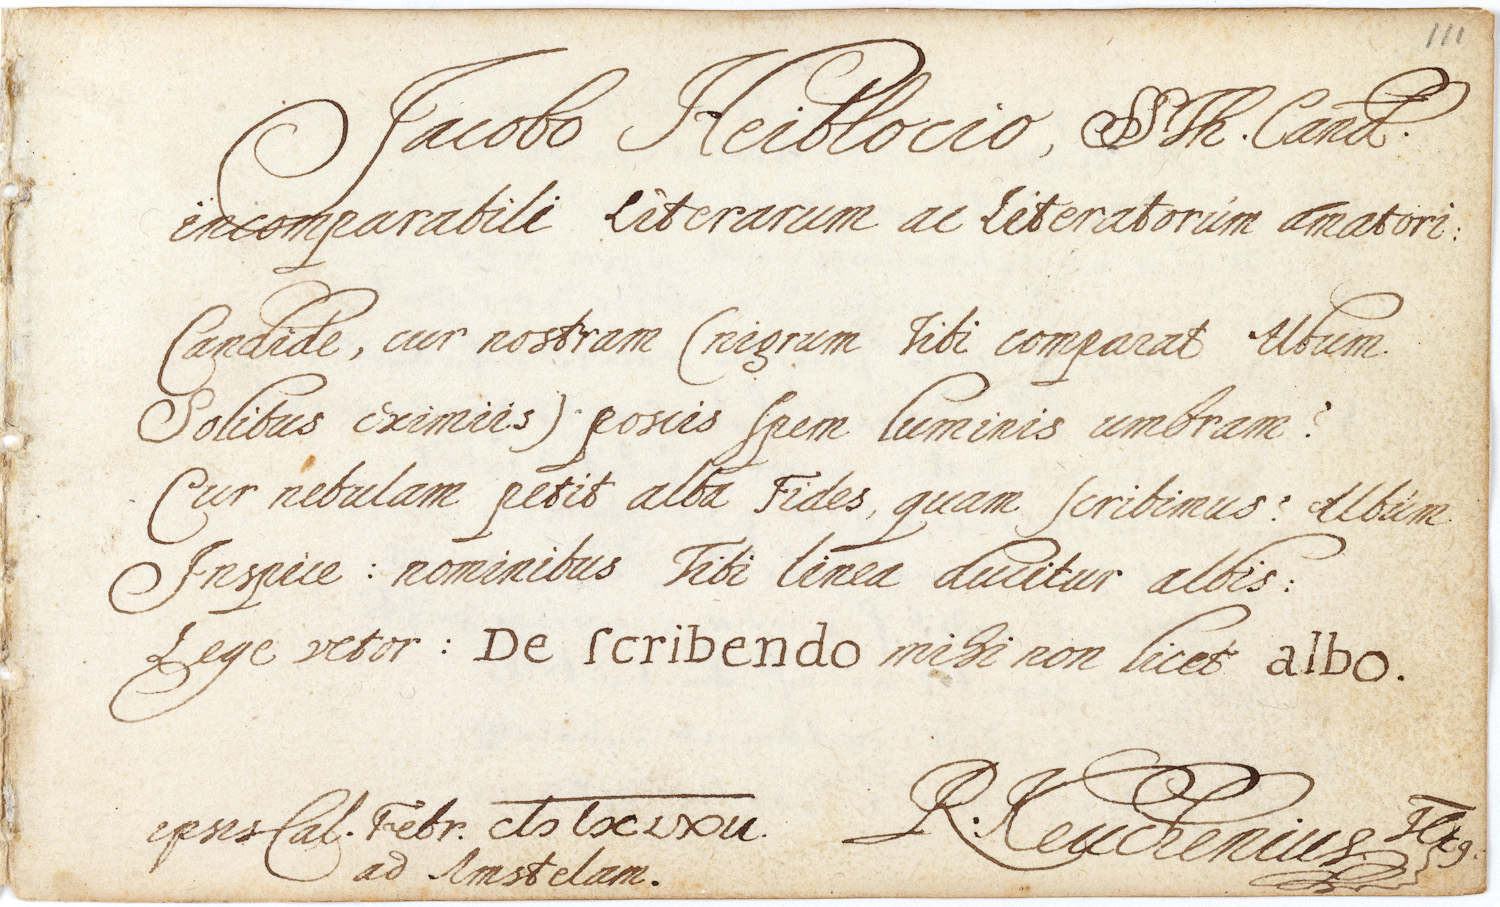 111
Jacobo Heiblocio, SS. Th. Cand.
incomparabili Literarum ac Literatorúm amatori:
Candide, cur nostram (nigrum Tibi comparat Album
Solibus eximiis) poscis spem luminis umbram?
Cur nebulam petit alba Fides, quam scribimus? Albúm
Inspice: nominibus Tibi linea ducitur albis:
Lege vetor: De scribendo mihi non licet albo.
ipsis Cal. Febr.
ad Amstelam.
R. Keuchenius